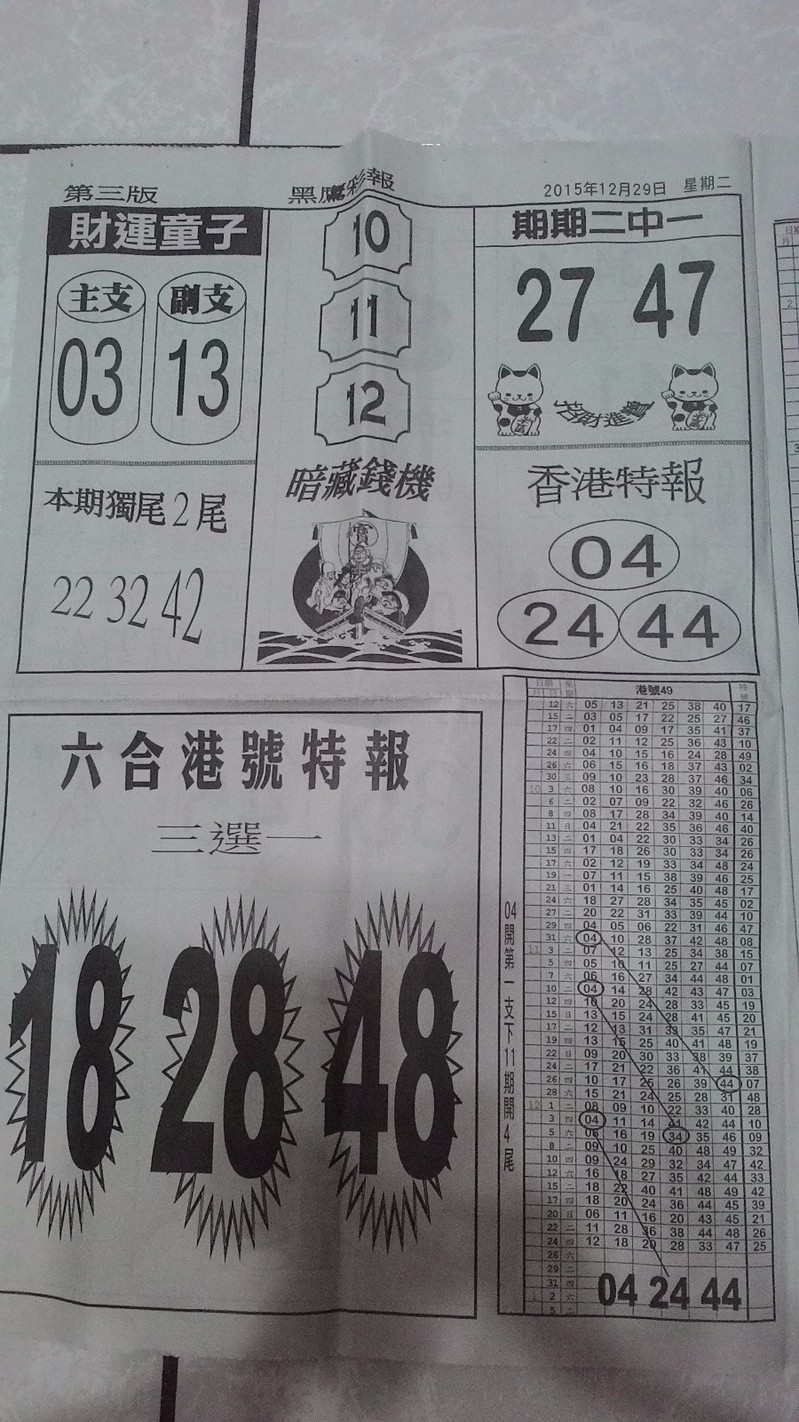 第三版
黑鷹彩報
2015年12月29日 星期二
財運童子
主支 副支
03 13
本期獨尾2尾
22 32 42
10
11
12
暗藏錢機
寶
期期二中一
27 47
招財進寶
香港特報
04
24 44
六合港號特報
三選一
18 28 48
04開第一支下11期開4尾
港號49
12 六 05 13 21 25 38 40 17
15 二 03 05 17 22 25 27 46
17 四 01 04 09 17 35 41 37
22 二 02 11 12 25 36 43 10
24 四 04 10 15 16 24 28 49
26 六 06 15 16 18 37 43 02
30 三 09 10 23 28 37 46 34
10 3 六 08 10 16 30 39 40 06
6 二 02 07 09 22 32 46 26
8 四 08 17 28 34 39 40 14
11 日 04 21 22 35 36 46 40
13 二 01 04 22 30 33 34 26
15 四 17 18 26 30 33 34 26
17 六 02 12 19 33 34 48 24
19 一 07 11 15 38 39 46 25
21 三 01 14 16 25 40 48 17
24 六 18 27 28 34 35 45 02
27 二 20 22 31 33 39 44 10
29 四 04 05 06 22 31 46 47
31 六 04 10 28 37 42 48 08
11 3 二 07 12 13 25 34 38 15
5 四 05 16 11 25 27 44 07
7 六 06 16 27 34 44 48 01
10 二 04 14 28 42 43 47 03
12 四 16 20 24 28 33 45 19
15 日 13 15 24 28 41 45 20
17 二 12 13 31 33 35 47 21
19 四 13 15 25 40 41 48 19
22 日 09 20 30 33 38 39 37
24 二 17 21 22 36 41 44 38
26 四 10 17 25 26 39 44 07
28 六 15 21 24 25 28 31 48
12 1 二 08 09 10 22 33 40 28
3 四 04 11 14 21 42 44 10
5 六 06 16 19 34 35 46 09
8 二 09 10 25 40 48 49 32
10 四 09 24 29 32 34 47 42
12 六 16 18 27 35 42 44 33
15 二 18 22 40 41 48 49 42
17 四 18 20 24 36 44 45 39
20 日 06 11 16 20 43 45 21
22 二 11 28 36 38 44 48 26
24 四 12 18 20 28 33 47 25
26 六
29 二
31 四
1 2 六
5 二
04 24 44